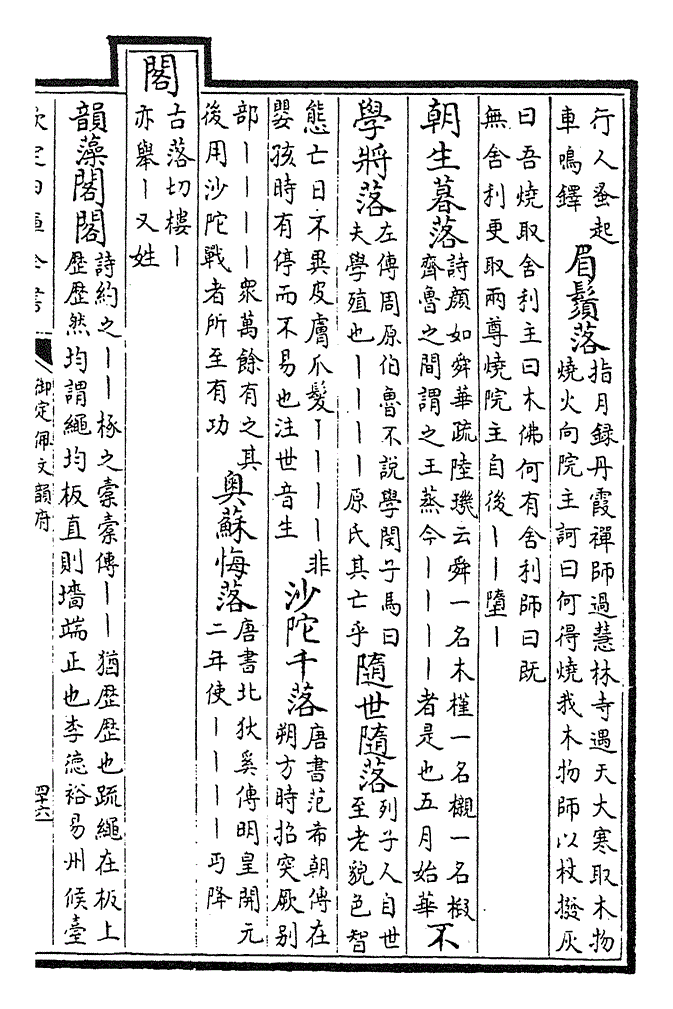 行人蚤起
車鳴鐸
眉鬚落
指月録丹霞禪師過慧林寺遇天大寒取木物
燒火向院主訶曰何得燒我木物師以杖撥灰
曰吾燒取舍利主曰木佛何有舍利師曰既
無舍利更取兩尊燒院主自後丨丨墮丨
朝生暮落
詩顔如舜華疏陸璣云舜一名木槿一名櫬一名椴
齊魯之間謂之王蒸今丨丨丨丨者是也五月始華
不
學將落
左傳周原伯魯不說學閔子馬曰
夫學殖也丨丨丨丨原氏其亡乎
隨世隨落
列子人自世
至老貌色智
態亡日不異皮膚爪髮丨丨丨丨非
嬰孩時有停而不易也注世音生
沙陀千落
唐書范希朝傳在
朔方時招突厥别
部丨丨丨丨衆萬餘有之其
後用沙陀戰者所至有功
奥蘇悔落
唐書北狄奚傳明皇開元
二年使丨丨丨丨丐降
閣
古落切樓丨
亦舉丨又姓
韻藻閣閣
詩約之丨丨椓之橐橐傳丨丨猶歴歴也疏繩在板上
歴歴然均謂繩均板直則墻端正也李徳裕易州候臺
欽定四庫全書
御定佩文韻府
四十六